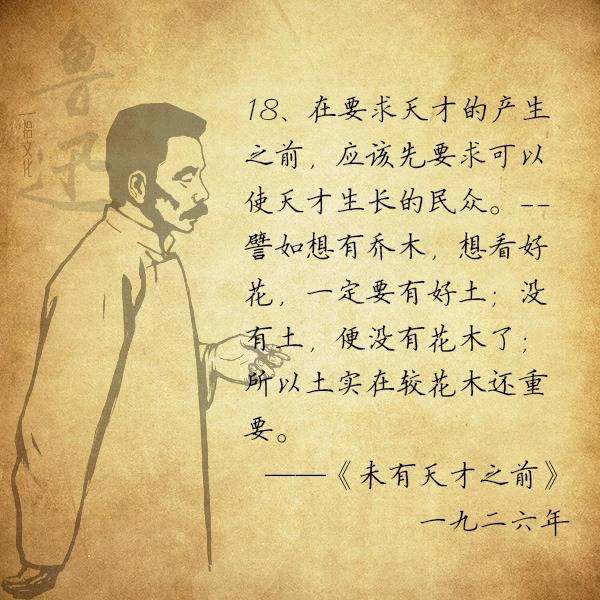 鲁迅
一代文化
18、在要求天才的产生
之前，应该先要求可以
使天才生长的民众。--
譬如想有乔木，想看好
花，一定要有好土；没
有土，便没有花木了；
所以土实在较花木还重
要。
——《未有天才之前》
一九二六年